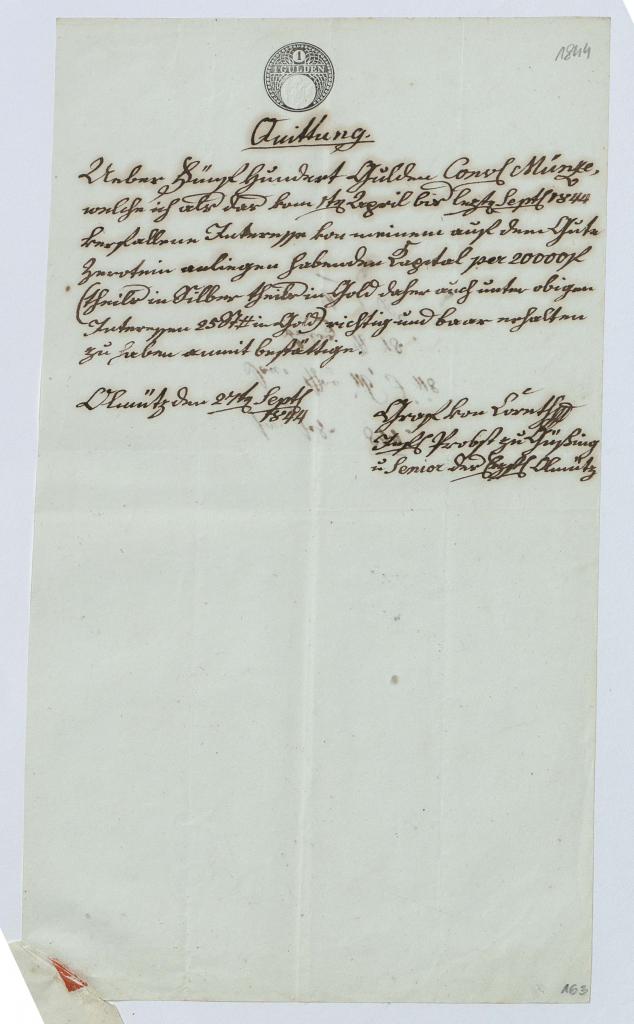 1844
1
1 GULDEN
Quittung.
Ueber Fünf Hundert Gulden Convs Münze,
welche ich als das vom 1tn April bis letzt Septb 1844
verfallene Interesse von meinem auf dem Gute
Zerotein anliegen habenden Kapital per 20000f
(theils in Silber theils in Gold daher auch unter obigen
Interessen 25 St# in Gold) richtig und baar erhalten
zu haben anmit bestättige.
Olmütz den 27tn Septb
1844
Graf von
Probst zu
u Senior der Olmütz
163